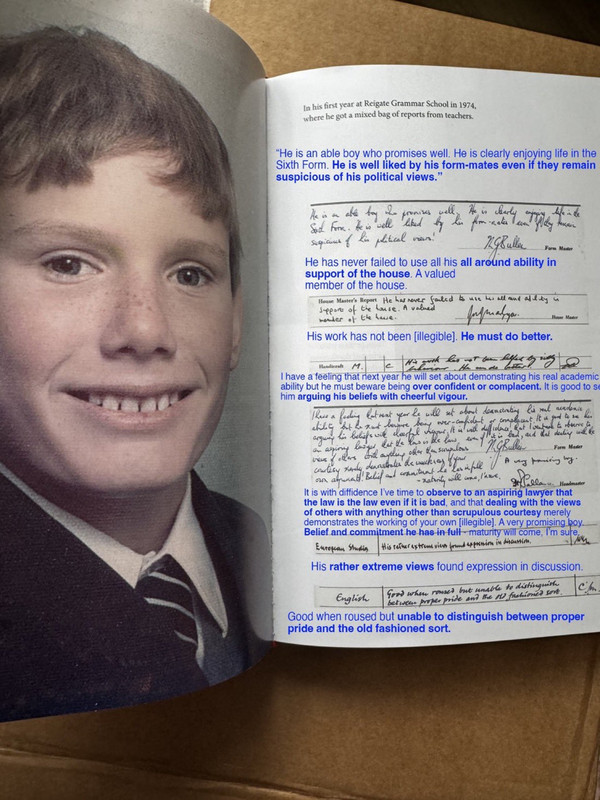 In his first year at Reigate Grammar School in 1974,
where he got a mixed bag of reports from teachers.
“He is an able boy who promises well. He is clearly enjoying life in the
Sixth Form. He is well liked by his form-mates even if they remain
suspicious of his political views.”
He is an able boy who promises well. He is clearly enjoying life in the
Sixth Form. He is well liked by his form-mates even if they remain
suspicious of his political views!
Form Master
He has never failed to use all his all around ability in
support of the house. A valued
member of the house.
House Master's Report He has never failed to use his all round ability in
support of the house. A valued
member of the house.
House Master
His work has not been [illegible]. He must do better.
Handicraft M. C His work has not been helped by
behaviour. He must do better
I have a feeling that next year he will set about demonstrating his real academic
ability but he must beware being over confident or complacent. It is good to se
him arguing his beliefs with cheerful vigour.
I have a feeling that next year he will set about demonstrating his real academic
ability but he must beware being over-confident or complacent. It is good to see him
arguing his beliefs with cheerful vigour. It is with diffidence that I venture to observe to
an aspiring lawyer that the law is the law, even if it is bad, and that dealing with the
views of others with anything other than scrupulous
Form Master
courtesy merely demonstrates the weakness of your
A very promising boy.
own argument! Belief and commitment he has in full
- maturity will come, I'm sure.
Headmaster
It is with diffidence I've time to observe to an aspiring lawyer that
the law is the law even if it is bad, and that dealing with the views
of others with anything other than scrupulous courtesy merely
demonstrates the working of your own [illegible]. A very promising boy.
Belief and commitment he has in full - maturity will come, I'm sure,
European Studies His rather extreme views found expression in discussion.
His rather extreme views found expression in discussion.
English Good when roused but unable to distinguish
between proper pride and the old fashioned sort.
Good when roused but unable to distinguish between proper
pride and the old fashioned sort.